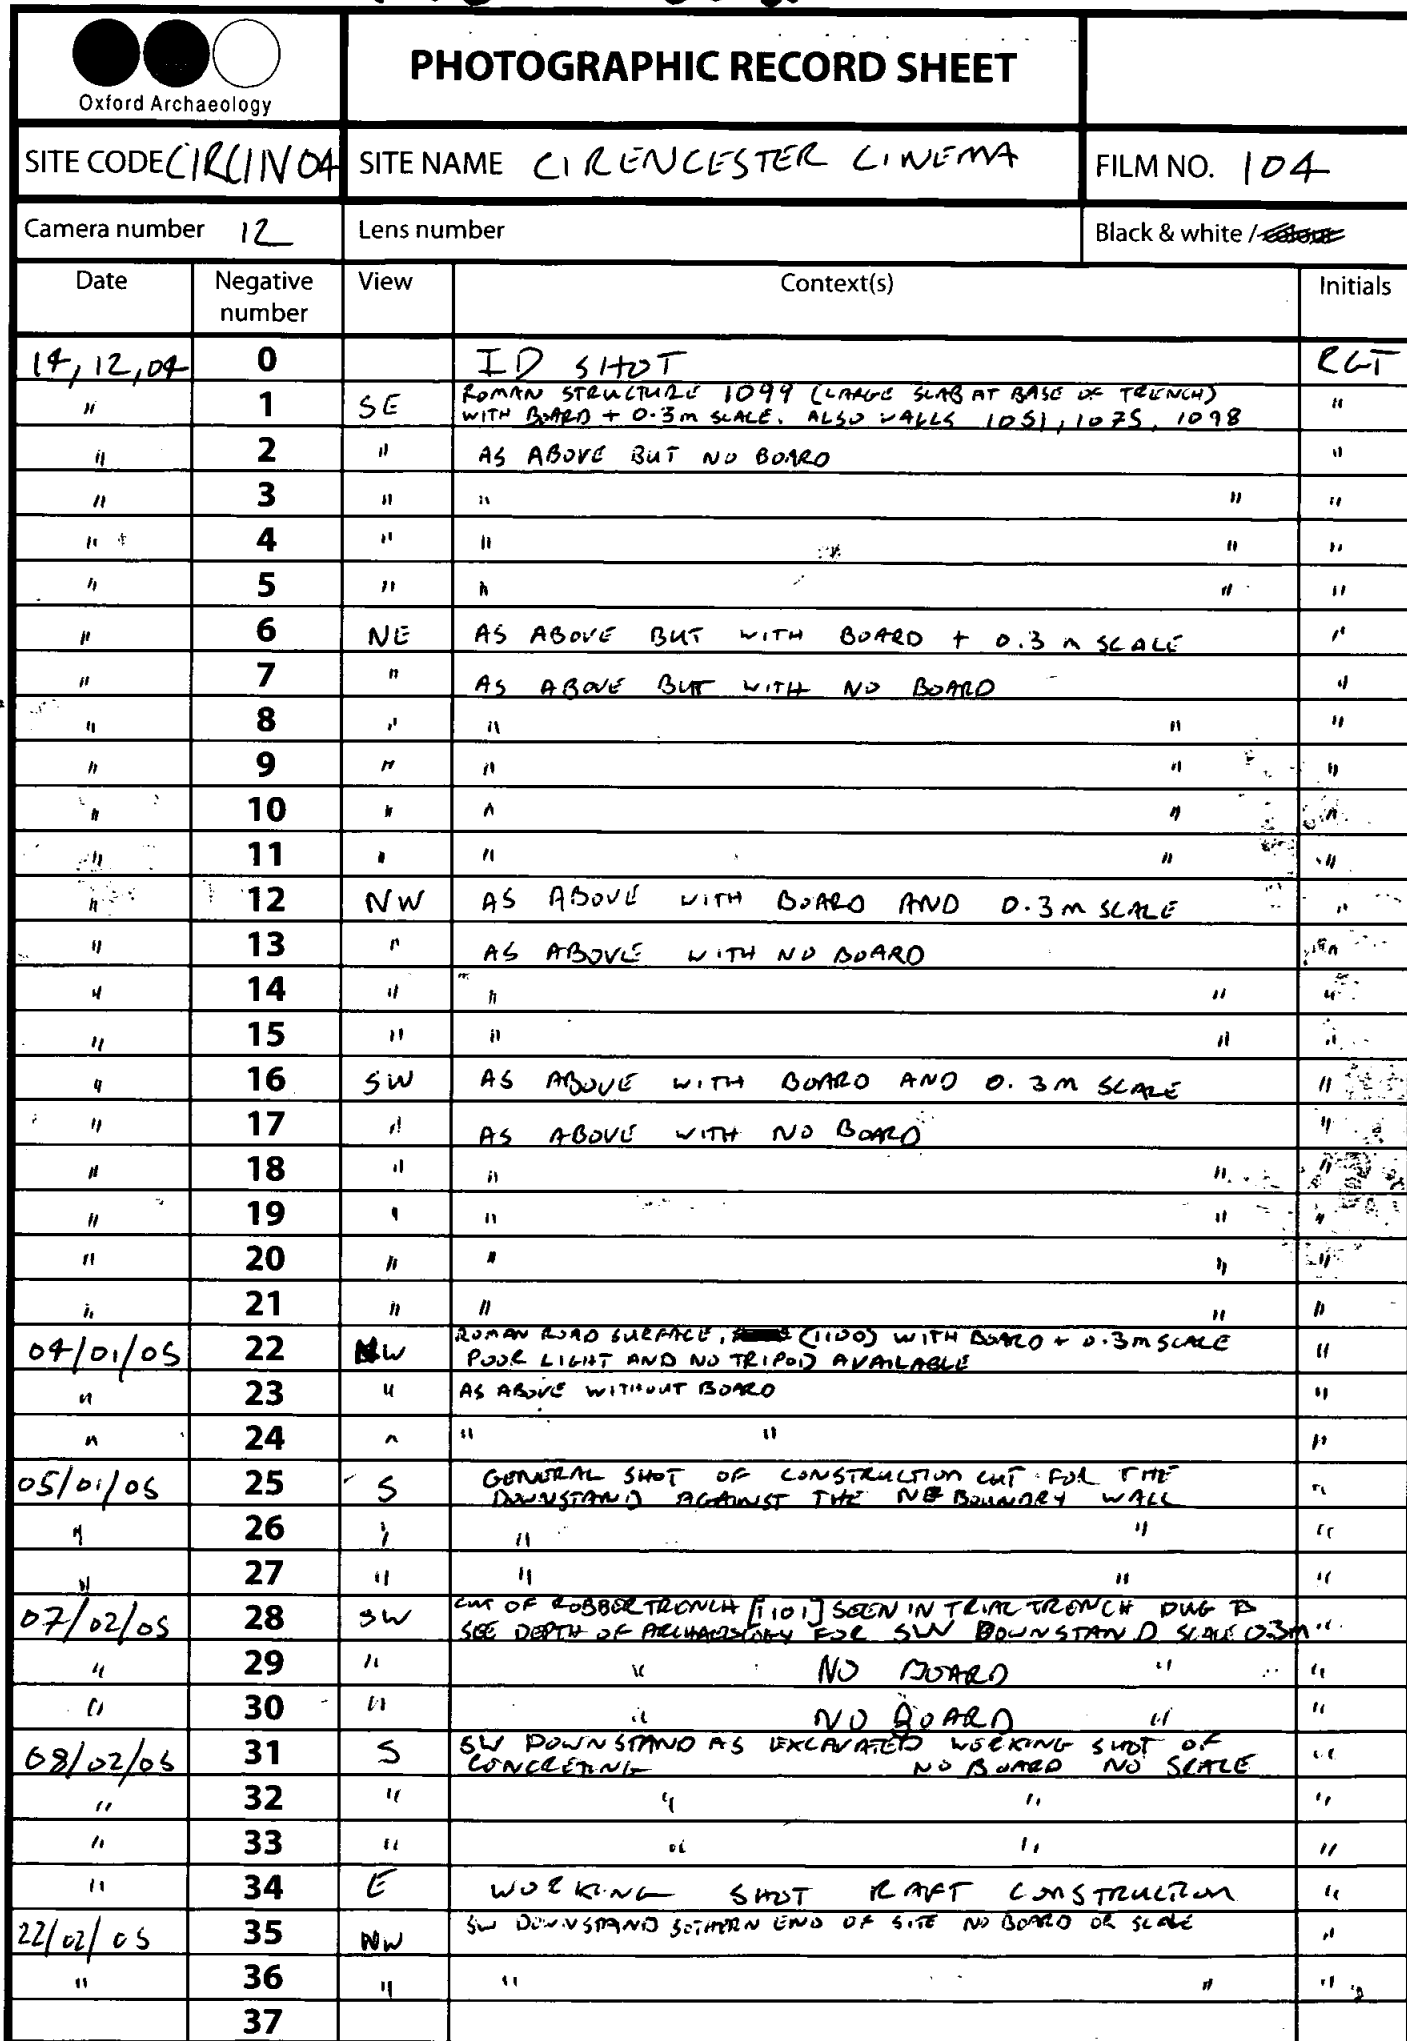 Oxford Archaeology
PHOTOGRAPHIC RECORD SHEET
SITE CODE CIRCIN04 SITE NAME CIRENCESTER CINEMA FILM NO. 104
Camera number 12 Lens number Black & white / colour
Date Negative number View Context(s) Initials
14,12,04 0 ID SHOT RGT
" 1 SE ROMAN STRUCTURE 1099 (LARGE SLAB AT BASE OF TRENCH)
WITH BOARD + 0.3m SCALE. ALSO WALLS 1051, 1075, 1098 "
" 2 " AS ABOVE BUT NO BOARD "
" 3 " " " "
" 4 " " " "
" 5 " " " "
" 6 NE AS ABOVE BUT WITH BOARD + 0.3 m SCALE "
" 7 " AS ABOVE BUT WITH NO BOARD "
" 8 " " " "
" 9 " " " "
" 10 " " " "
" 11 " " " "
" 12 NW AS ABOVE WITH BOARD AND 0.3m SCALE "
" 13 " AS ABOVE WITH NO BOARD "
" 14 " " " "
" 15 " " " "
" 16 SW AS ABOVE WITH BOARD AND 0.3m SCALE "
" 17 " AS ABOVE WITH NO BOARD "
" 18 " " " "
" 19 " " " "
" 20 " " " "
" 21 " " " "
04/01/05 22 NW ROMAN ROAD SURFACE, (1100) WITH BOARD + 0.3m SCALE
POOR LIGHT AND NO TRIPOD AVAILABLE "
" 23 " AS ABOVE WITHOUT BOARD "
" 24 " " " "
05/01/05 25 S GENERAL SHOT OF CONSTRUCTION CUT FOR THE
DOWNSTAND AGAINST THE NE BOUNDARY WALL "
" 26 " " " "
" 27 " " " "
07/02/05 28 SW CUT OF ROBBER TRENCH [1101] SEEN IN TRIAL TRENCH DUG TO
SEE DEPTH OF ARCHAEOLOGY FOR SW DOWNSTAND SCALE 0.3m "
" 29 " " NO BOARD " "
" 30 " " NO BOARD " "
08/02/05 31 S SW DOWNSTAND AS EXCAVATED WORKING SHOT OF
CONCRETING NO BOARD NO SCALE "
" 32 " " " "
" 33 " " " "
" 34 E WORKING SHOT RAFT CONSTRUCTION "
22/02/05 35 NW SW DOWNSTAND SOTHERN END OF SITE NO BOARD OR SCALE "
" 36 " " " "
37